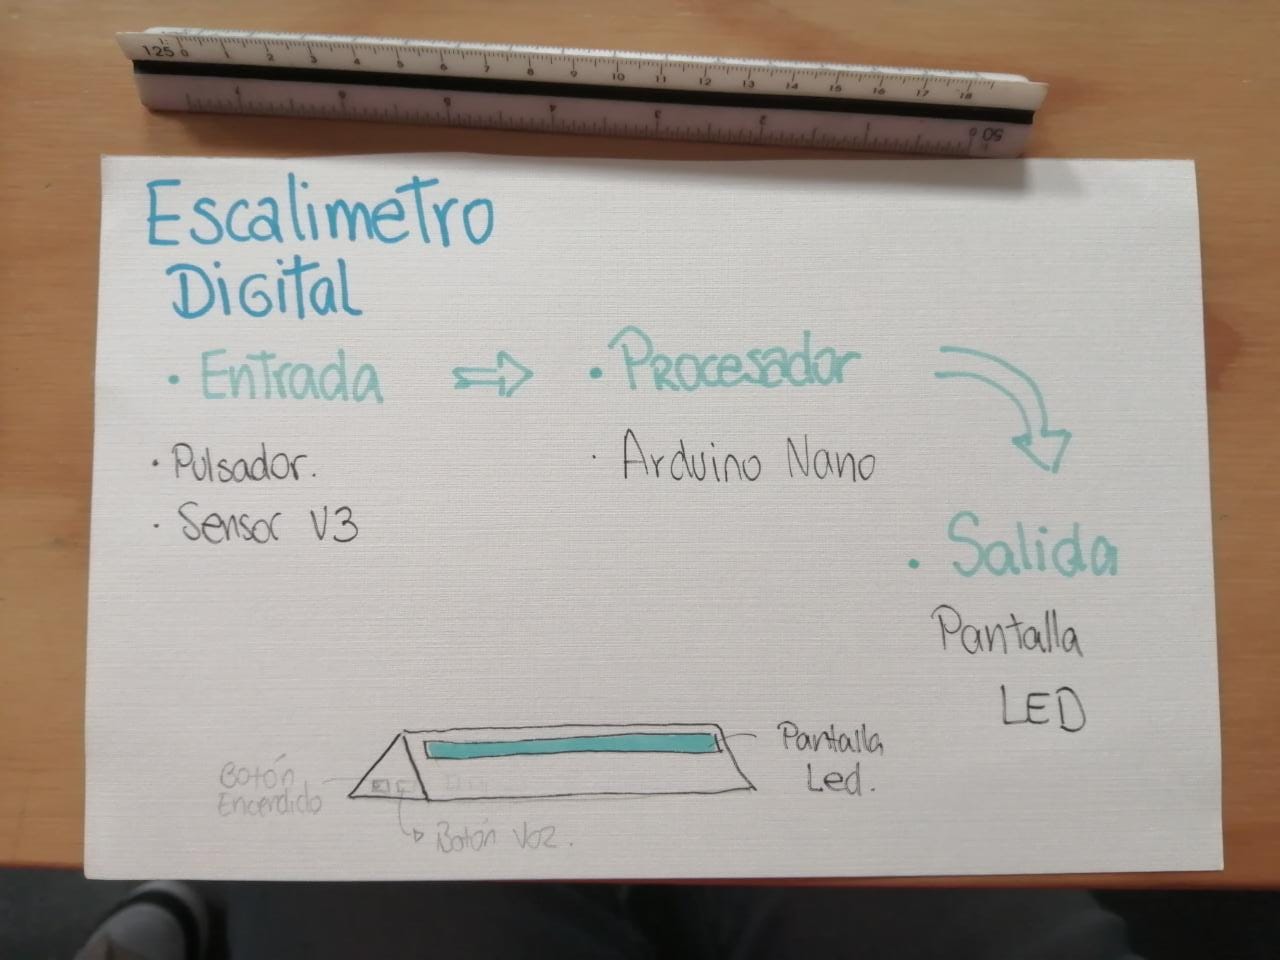 125 0 1 2 3 4 5 6 7 8 9 10 11 12 13 14 15 16 17 18
1 2 3 4 5 6 7
0 50
Escalimetro
Digital
• Entrada
• Procesador
• Pulsador.
• Sensor V3
• Arduino Nano
• Salida
Pantalla
LED
Pantalla
Led.
Botón
Encendido
Botón Voz.